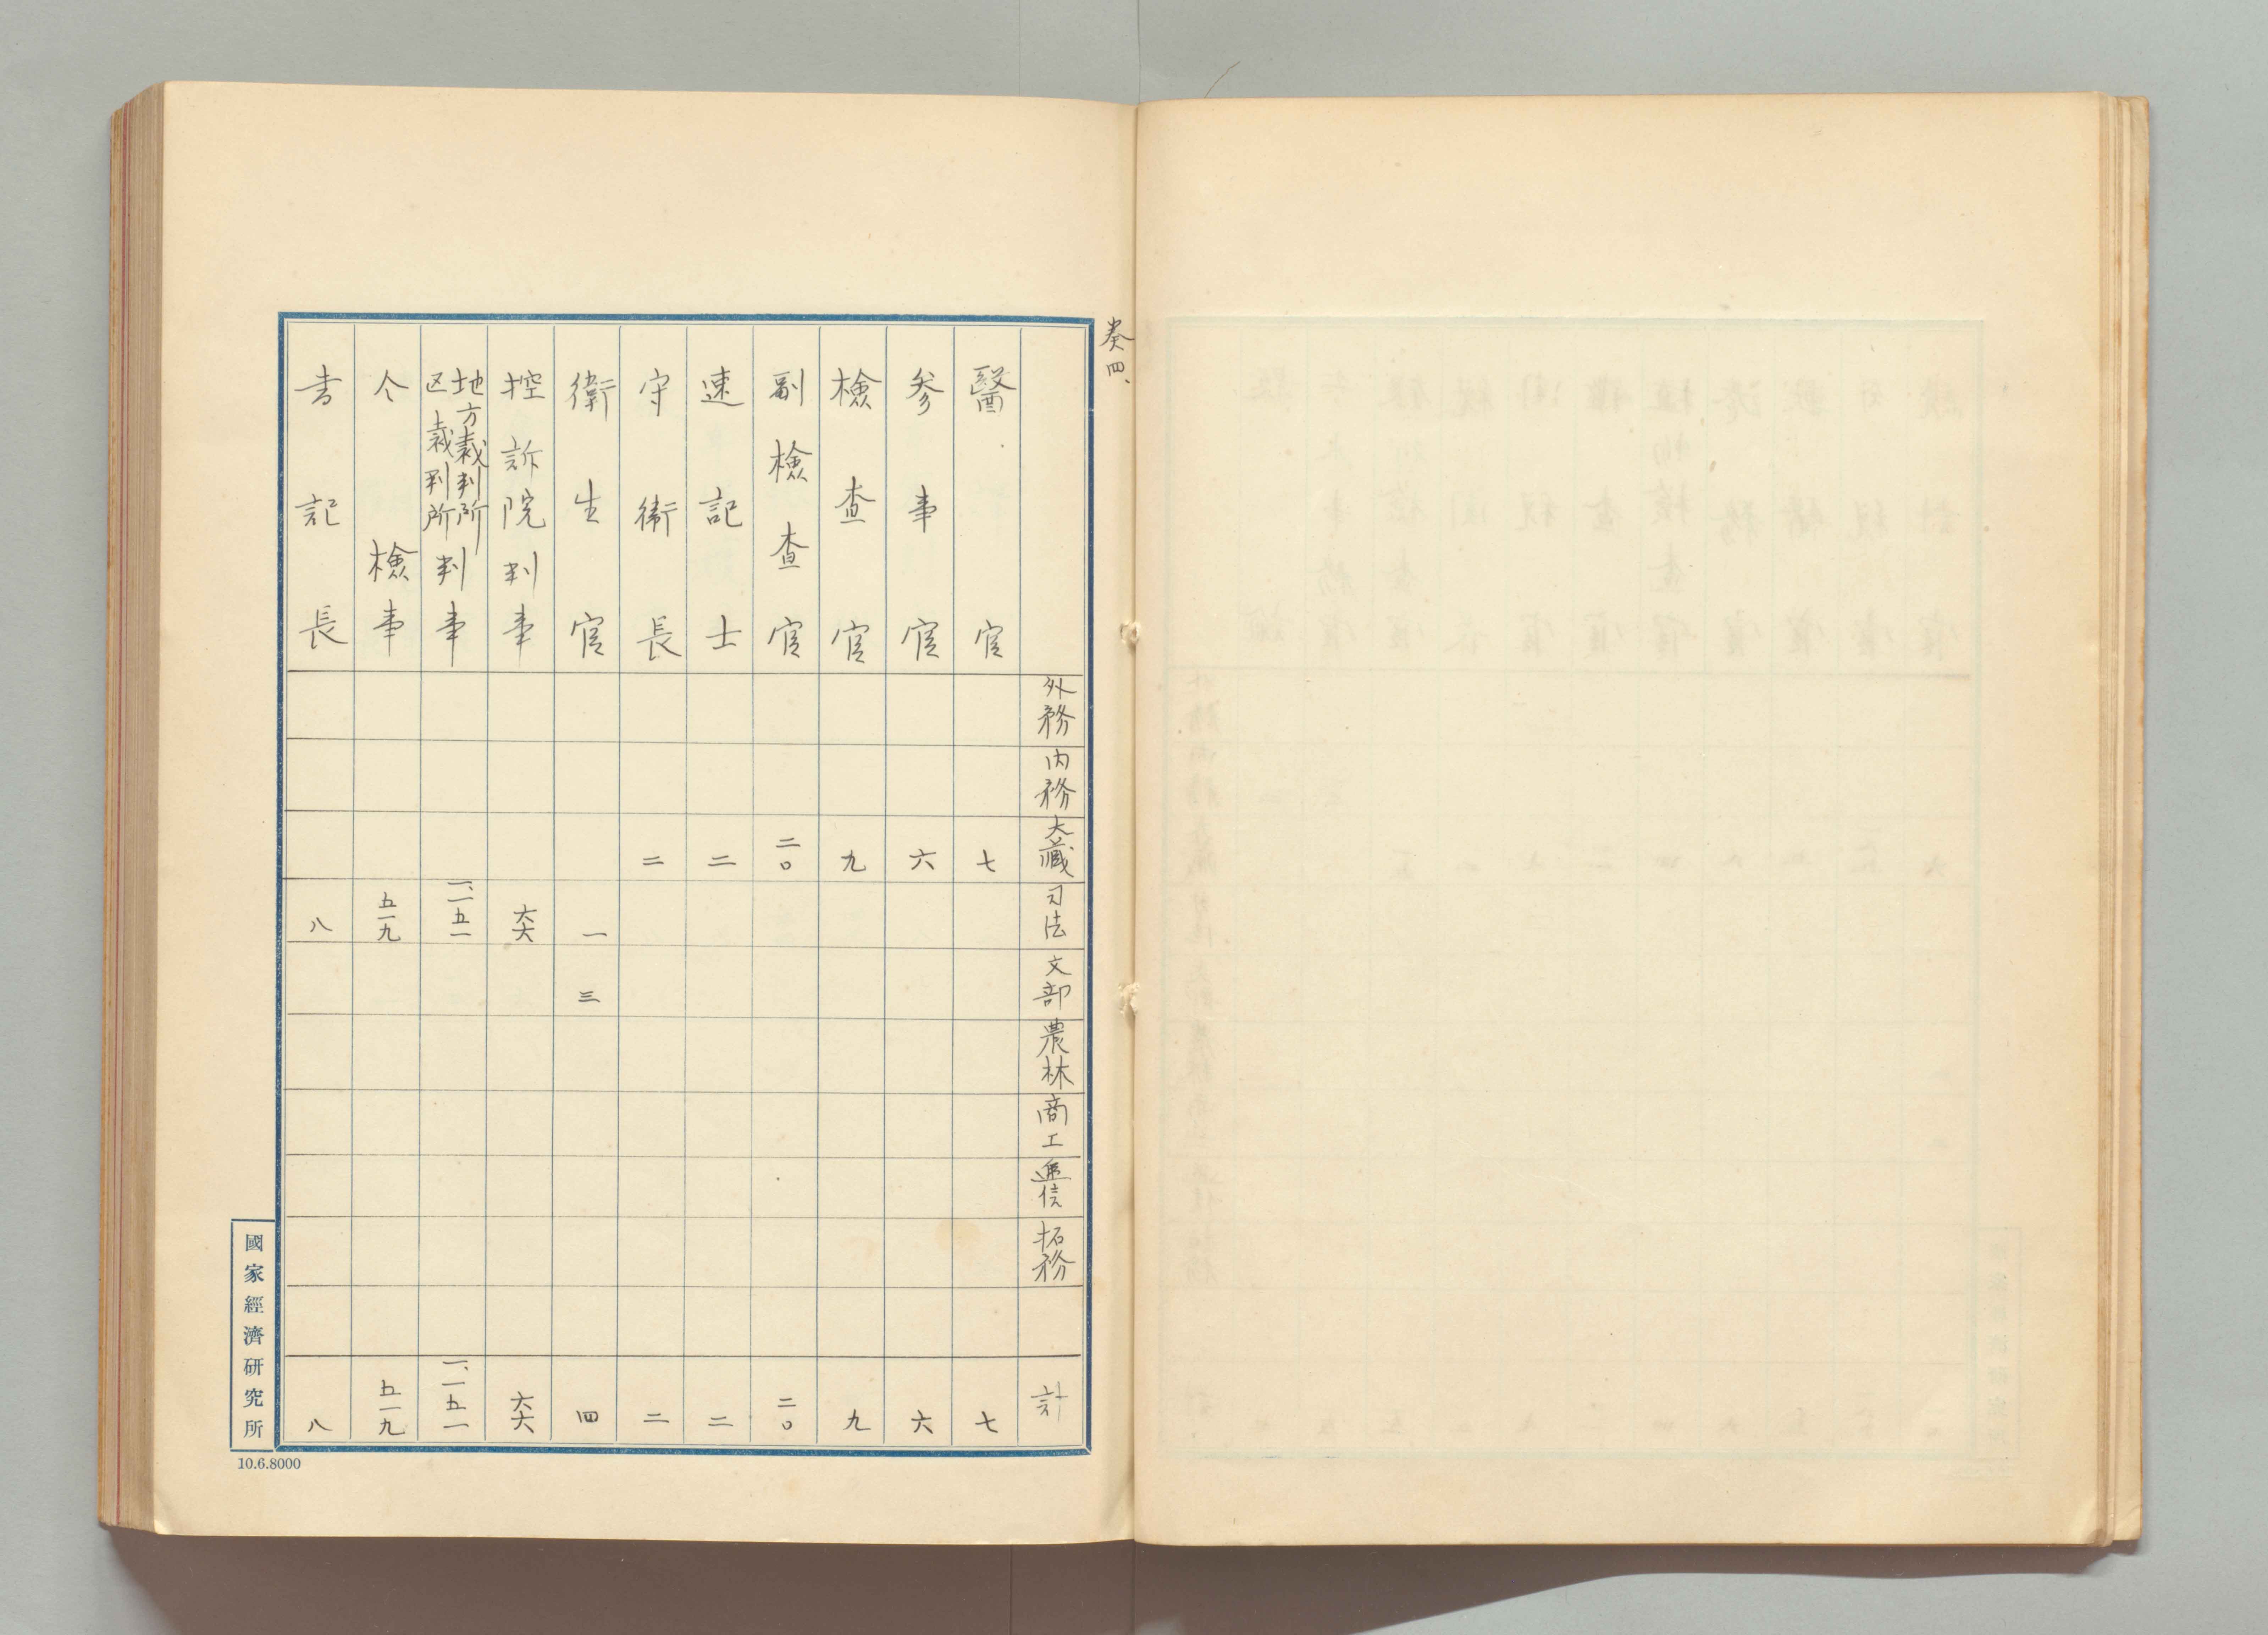 表四、
外務
内務
大藏
司法
文部
農林
商工
逓信
拓務
計
醫官 七 七
参事官 六 六
檢査官 九 九
副檢査官 二〇 二〇
速記士 二 二
守衛長 二 二
衛生官 一 三 四
控訴院判事 六六 六六
地方裁判所
区裁判所
判事 一、一五一 一、一五一
仝檢事 五一九 五一九
書記長 八 八
國家經濟研究所
10.6.8000